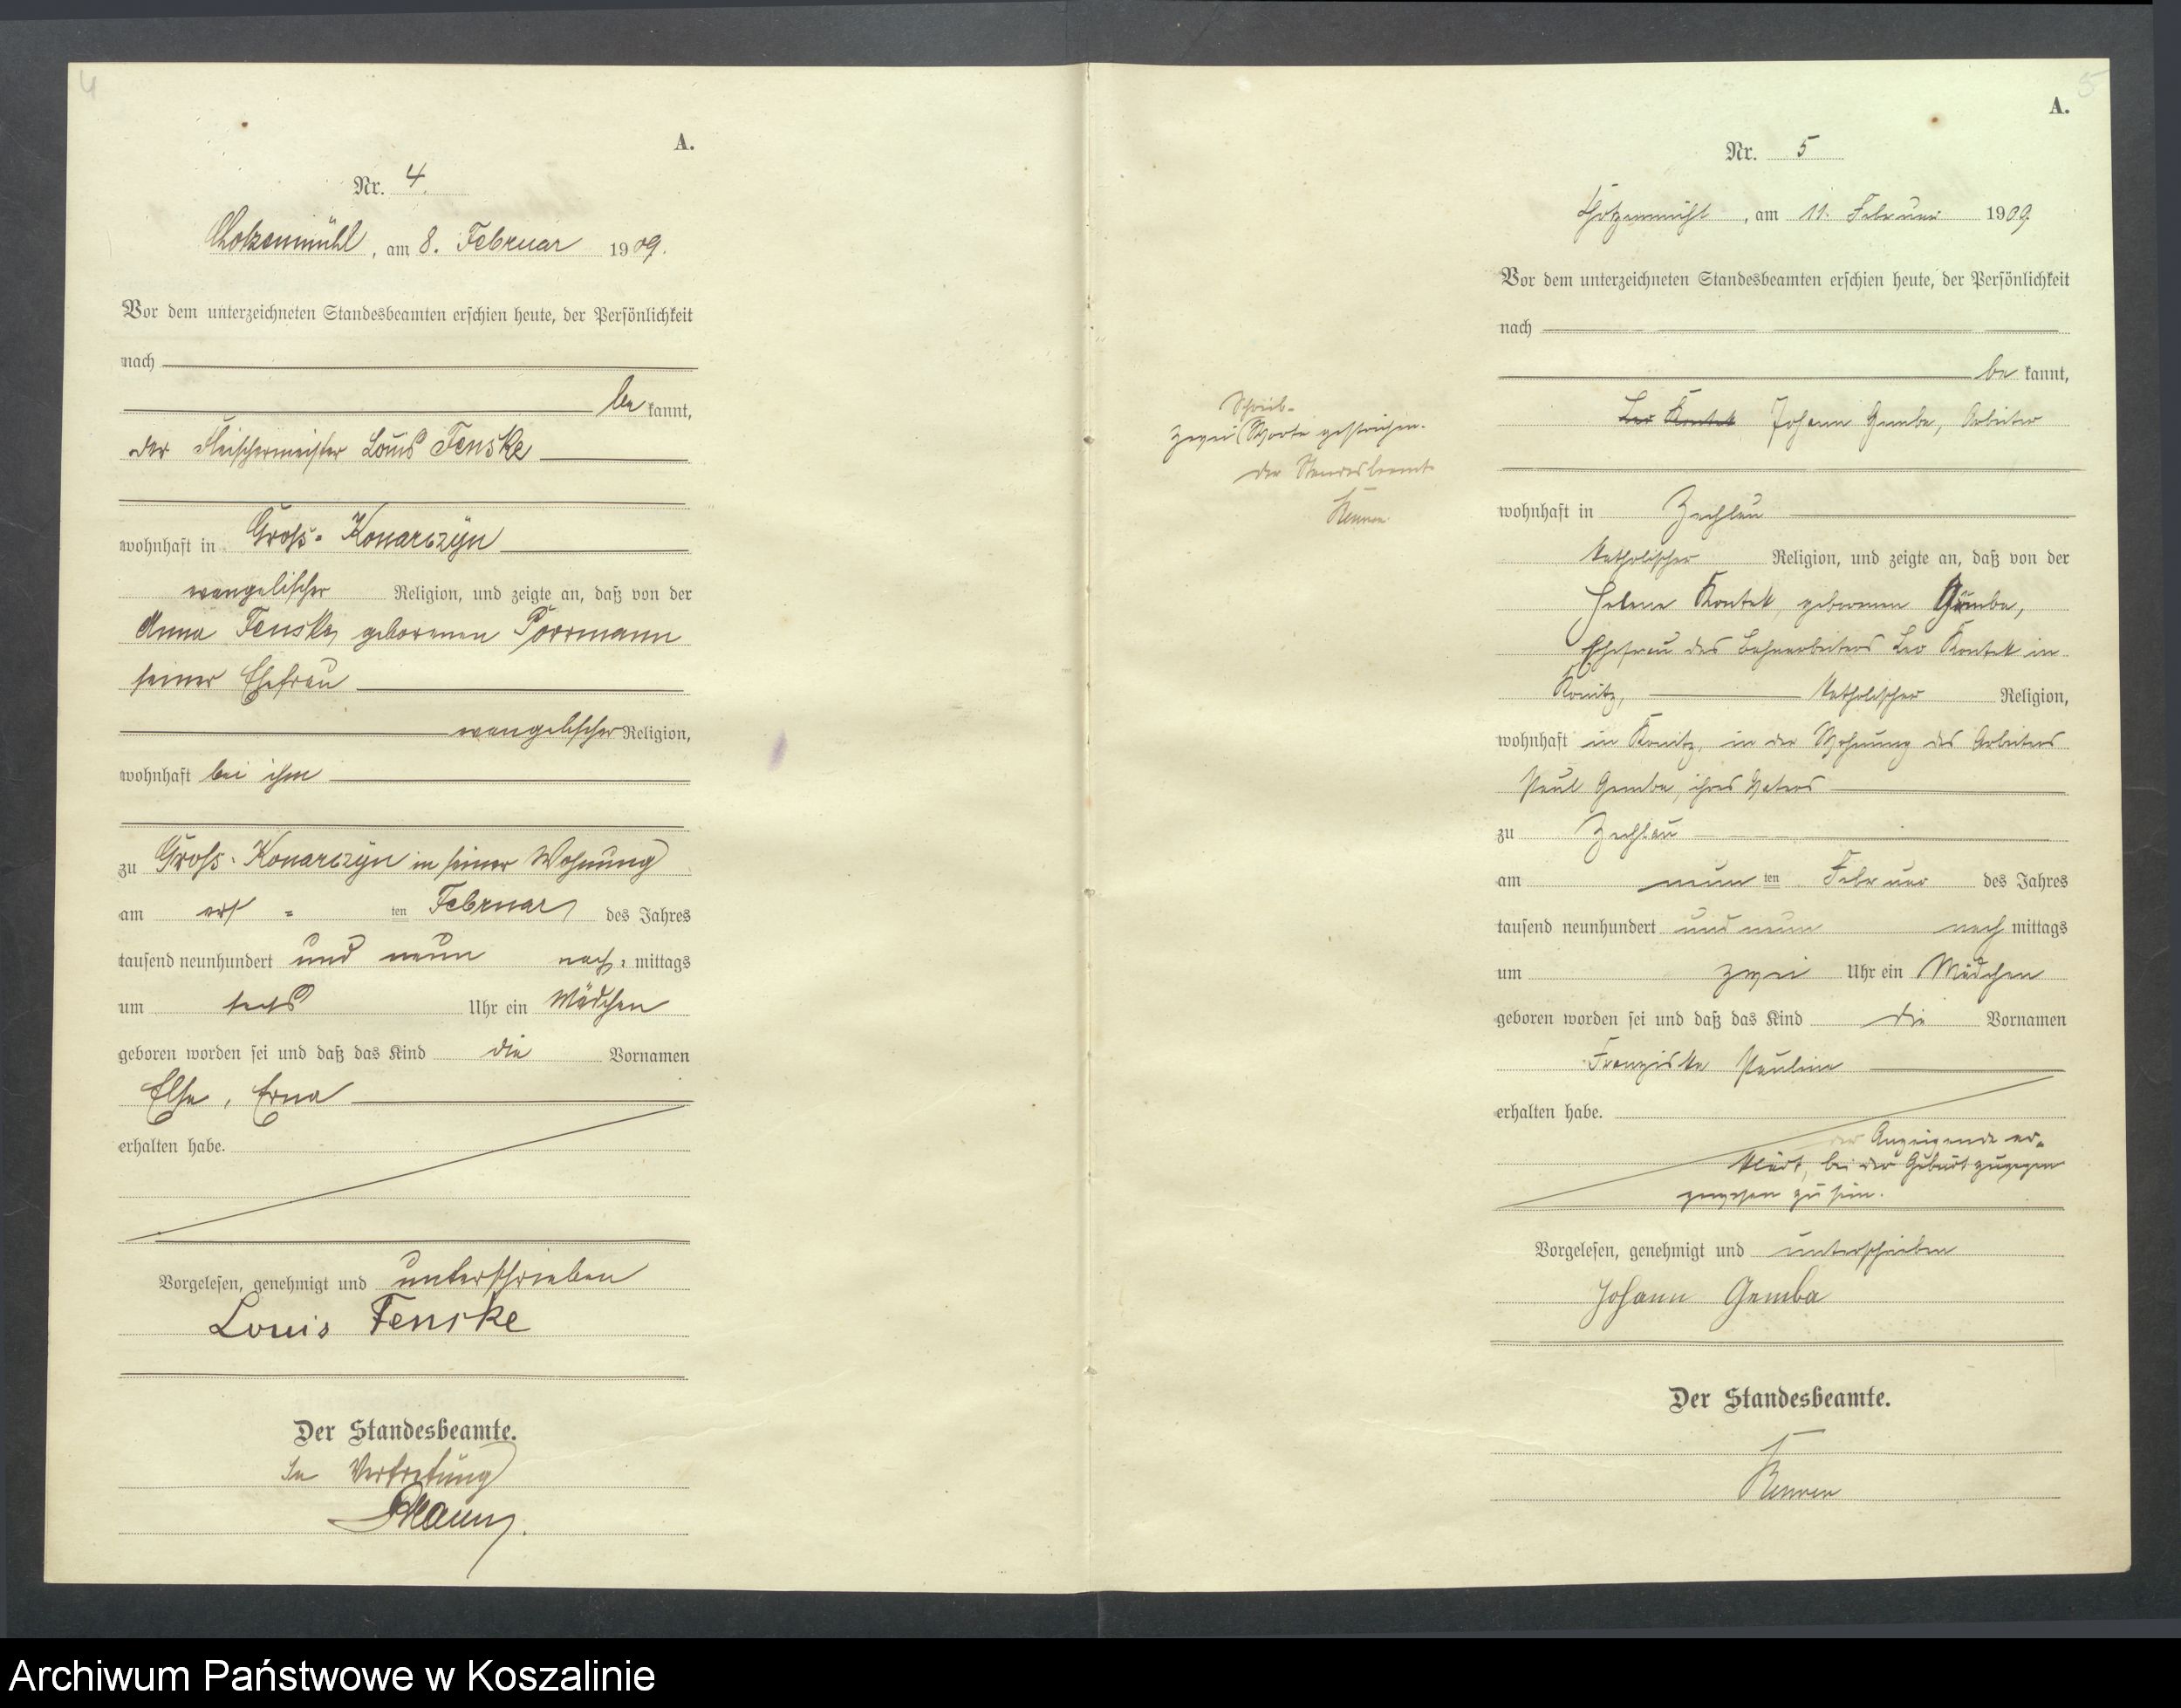 4
A.
Nr. 4.
Chotzenmühl, am 8. Februar 1909.
Vor dem unterzeichneten Standesbeamten erschien heute, der Persönlichkeit
nach
be kannt,
der Fleischermeister Louis Fenske
wohnhaft in Gross-Konarczyn
evangelischer Religion, und zeigte an, daß von der
Anna Fenske, geborenen Porrmann
seiner Ehefrau
evangelischer Religion,
wohnhaft bei ihm
zu Gross-Konarczyn in seiner Wohnung
am ers-ten Februar des Jahres
tausend neunhundert und neun nach-mittags
um sechs Uhr ein Mädchen
geboren worden sei und daß das Kind die Vornamen
Else, Erna
erhalten habe.
Vorgelesen, genehmigt und unterschrieben
Louis Fenske
Der Standesbeamte.
In Vertretung
5
A.
Nr. 5
Chotzenmühl, am 11. Februar 1909
Vor dem unterzeichneten Standesbeamten erschien heute, der Persönlichkeit
nach
be kannt,
Leo Kontek Johann Gemba, Arbeiter
Schreib-
zwei Worte gestrichen.
der Standesbeamte
wohnhaft in Zechlau
katholischer Religion, und zeigte an, daß von der
Helene Kontek, geborenen Gemba,
Ehefrau des Bahnarbeiters Leo Kontek in
Konitz, katholischer Religion,
wohnhaft in Konitz, in der Wohnung des Arbeiters
Paul Gemba, ihres Vaters
zu Zechlau
am neun ten Februar des Jahres
tausend neunhundert und neun nach mittags
um zwei Uhr ein Mädchen
geboren worden sei und daß das Kind die Vornamen
Franziska Pauline
erhalten habe.
der Anzeigende er-
klärt, bei der Geburt zugegen
gewesen zu sein.
Vorgelesen, genehmigt und unterschrieben
Johann Gemba
Der Standesbeamte.
Archiwum Państwowe w Koszalinie